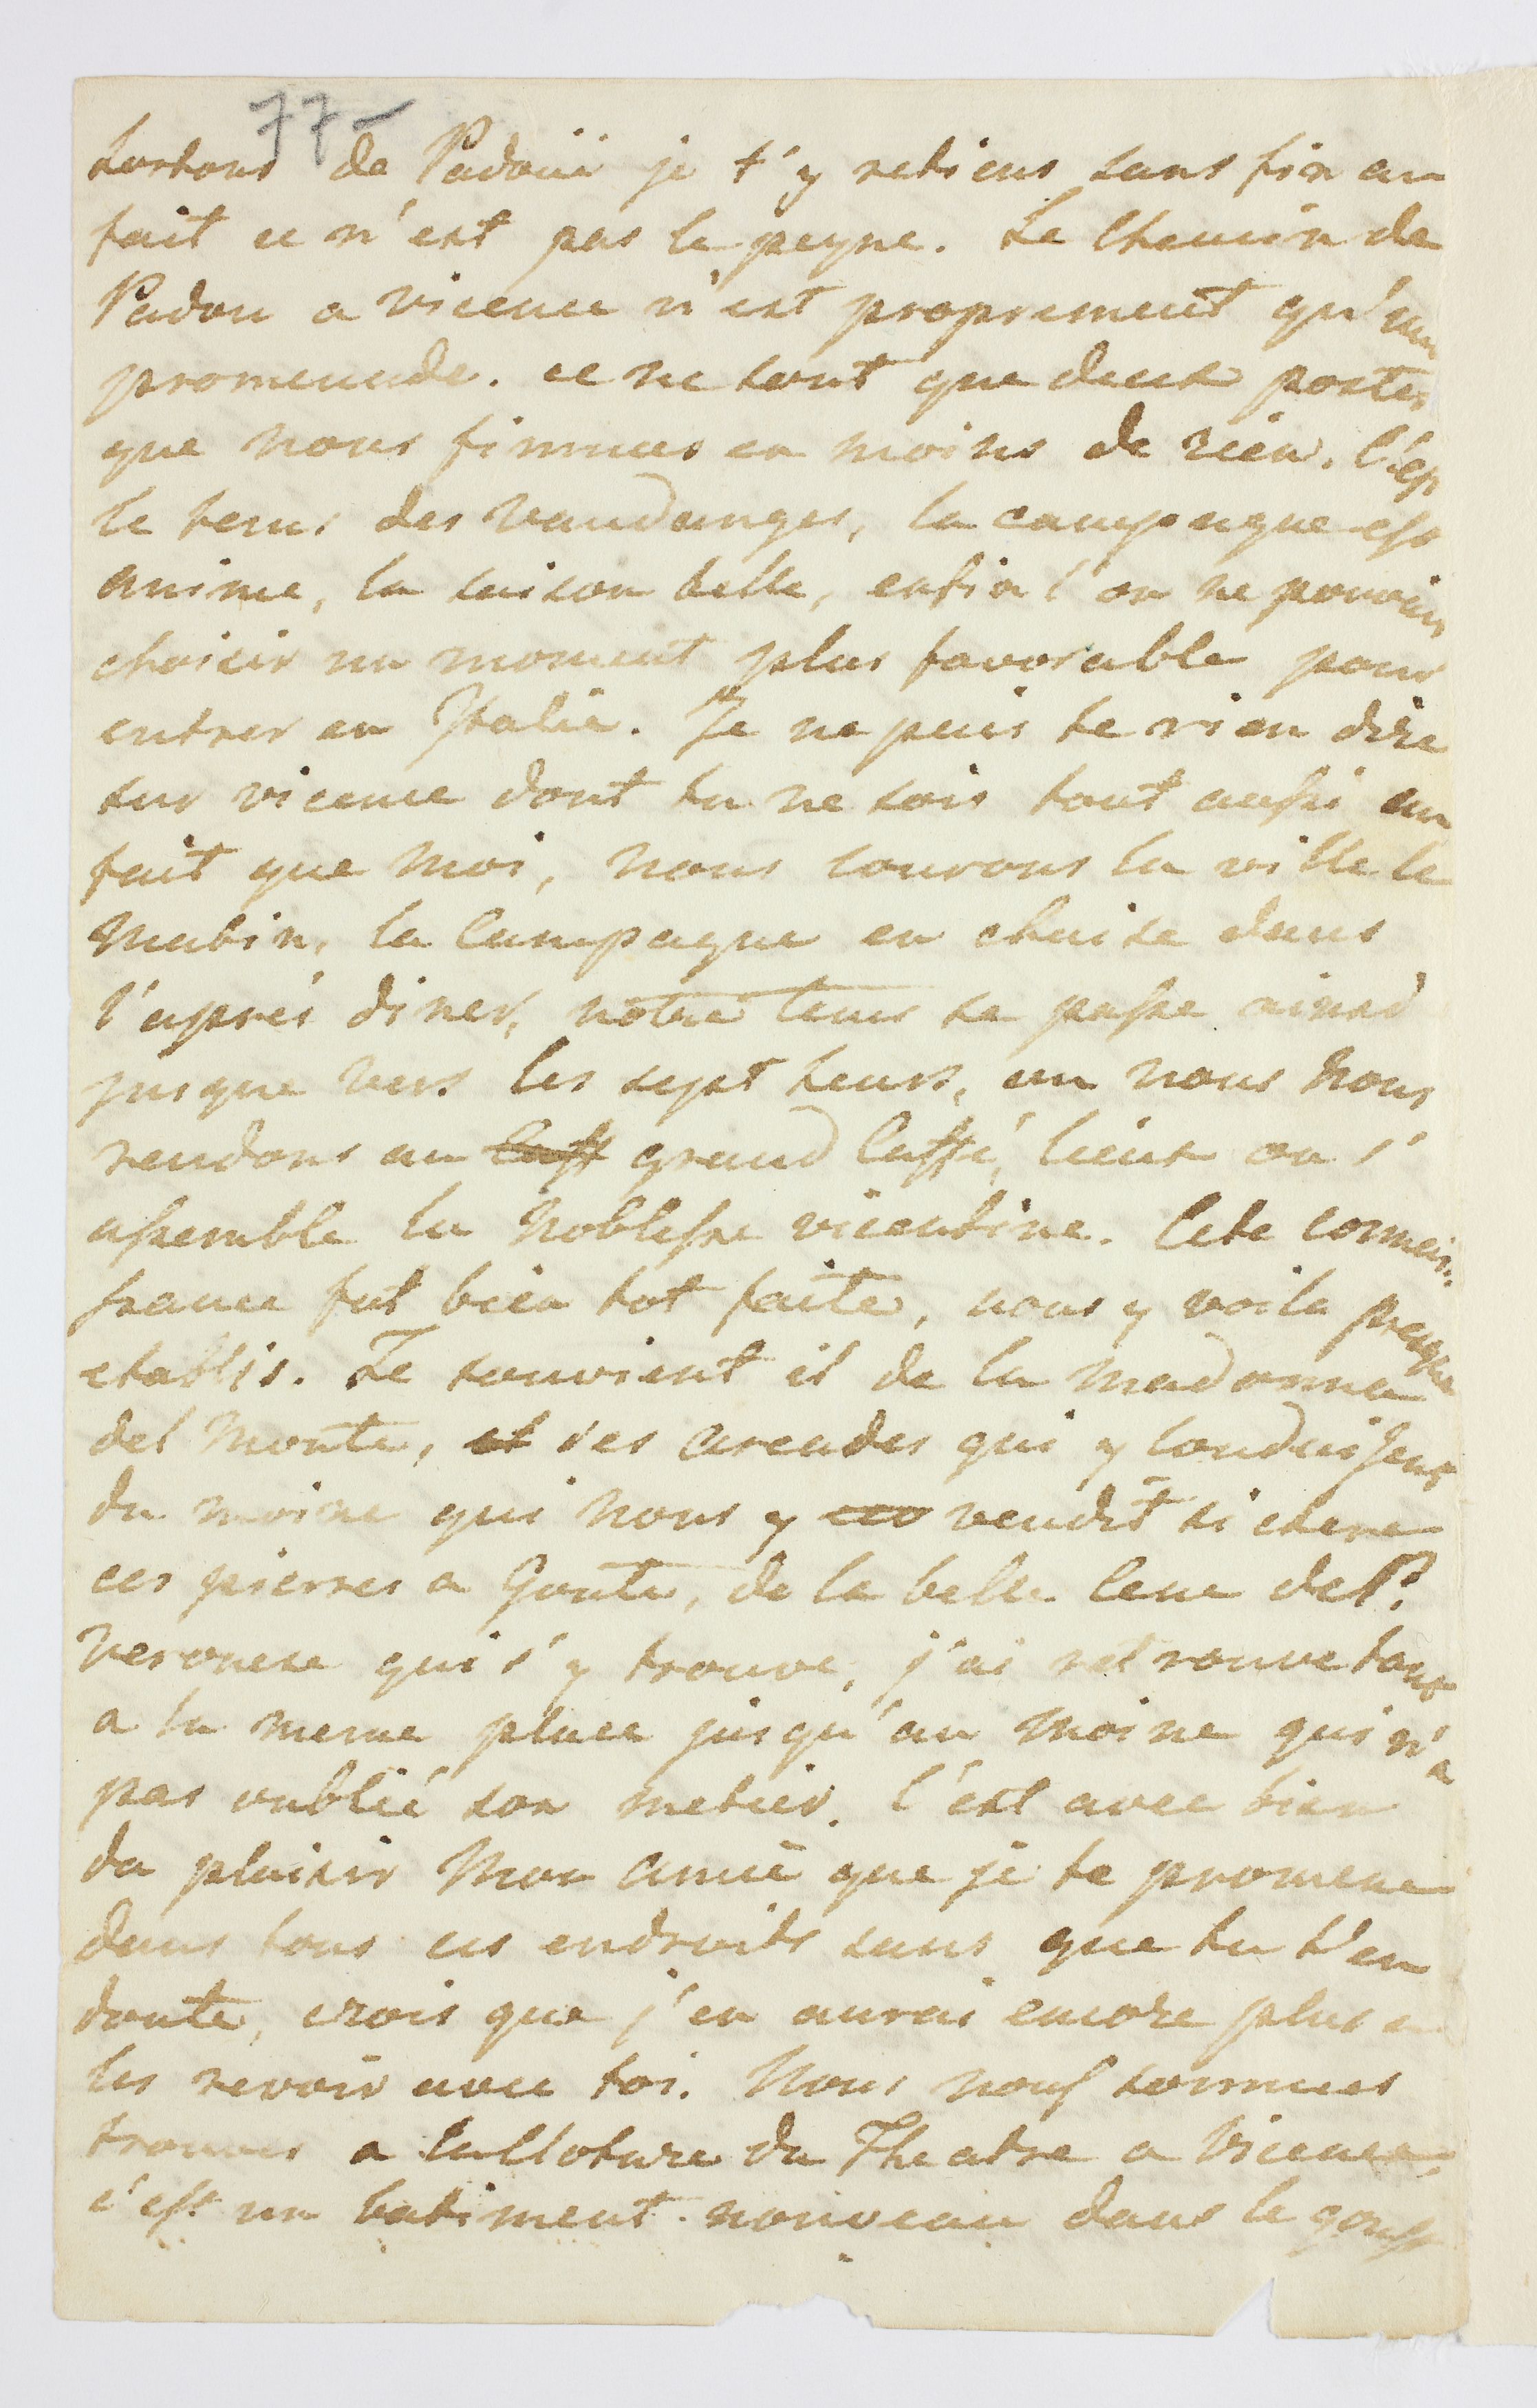 77-
Sortons de Padoüe je t'y retiens sans fin au
fait ce n'est pas la peyne. Le Chemin de
Padou a vicence n'est proprement qu'une
promenade. ce ne sont que deux postes
que nous finimes en moins de rien. C'est
le tems des vandanges, la campagne est
anime, la saison belle, enfin l'on ne pouvoit
choisir un moment plus favorable pour
entrer en Italie. Je ne puis te rien dire
sur vicence dont tu ne sois tout aussi au
fait que moi, nous courons la ville le
Matin, la Campagne en chaise dans
l'aprés diner, notre tems se passe ainsi
jusque vers les sept heurs, ou nous nous
rendons au Caff grand Caffé, lieux ou s'
assemble la Noblesse vicentine. Cete connais-
sance fut bien tot faite, nous y voila presque
etablis. Te souvient il de la madonna
del Monte, et des arcades qui y conduisent
du moine qui nous y vendit si chere
ces pierres a Goute, de la belle Cene de P.
Veronese qui s'y trouve, j'ai retrouve tout
a la meme place jusqu'au Moine qui n'a
pas oublié son metier. C'est avec bien
du plaisir Mon Amie que je te promene
dans tous ces endroits sans que tu t'en
doute, crois que j'en aurai encore plus a
les revoir avec toi. Nous nous sommes
trouves a la Cloture du Theatre a Vicence,
c'est un batiment nouveau dans le goust